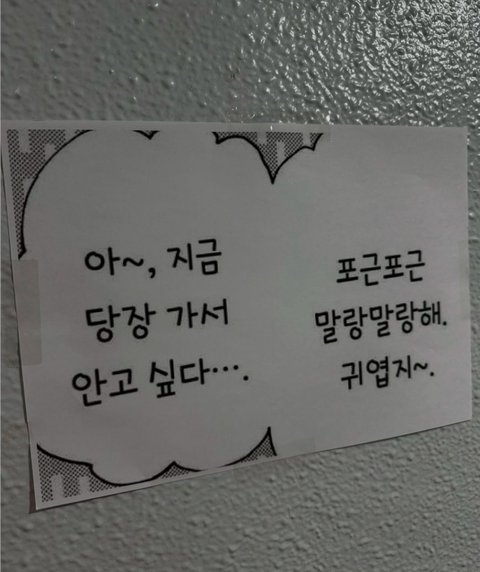 아~, 지금
당장 가서
안고 싶다….
포근포근
말랑말랑해.
귀엽지~.